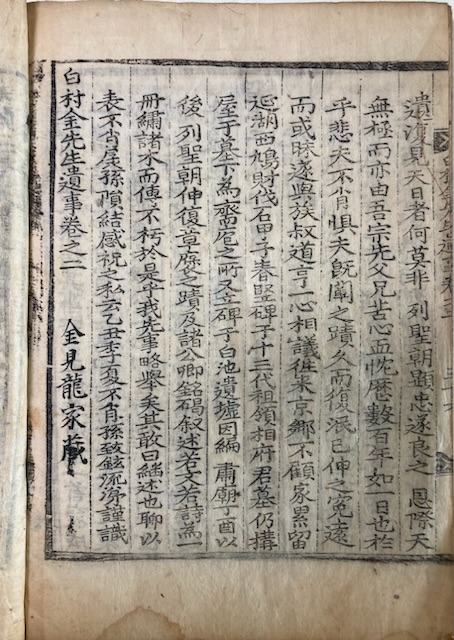 遺澤見天日者何莫非 列聖朝顯忠遂良之 恩際天
無極而亦由吾宗先父兄苦心血忱歷數百年如一日也於
乎悲夫不肖惧夫旣闡之蹟久而復泯已伸之寃遠
而或昧遂與族叔道亨一心相議往來京鄕不顧家累留
延湖西鳩財伐石甲子春竪碑于十三代祖領相府君墓仍搆
屋于墓下為齋庖之所又立碑于白池遺墟因編 肅廟丁酉以
後 列聖朝伸復章牘爻蹟及諸公卿銘碣叙述若文若詩爲一
冊繡諸木而傳不朽於是乎我先事略擧矣其敢曰繼述也聊以
表不肖孱孫隕結感祝之私云乙丑季夏不肖孫致鉉流涕謹識
白村金先生遺事卷之二
金見龍家藏